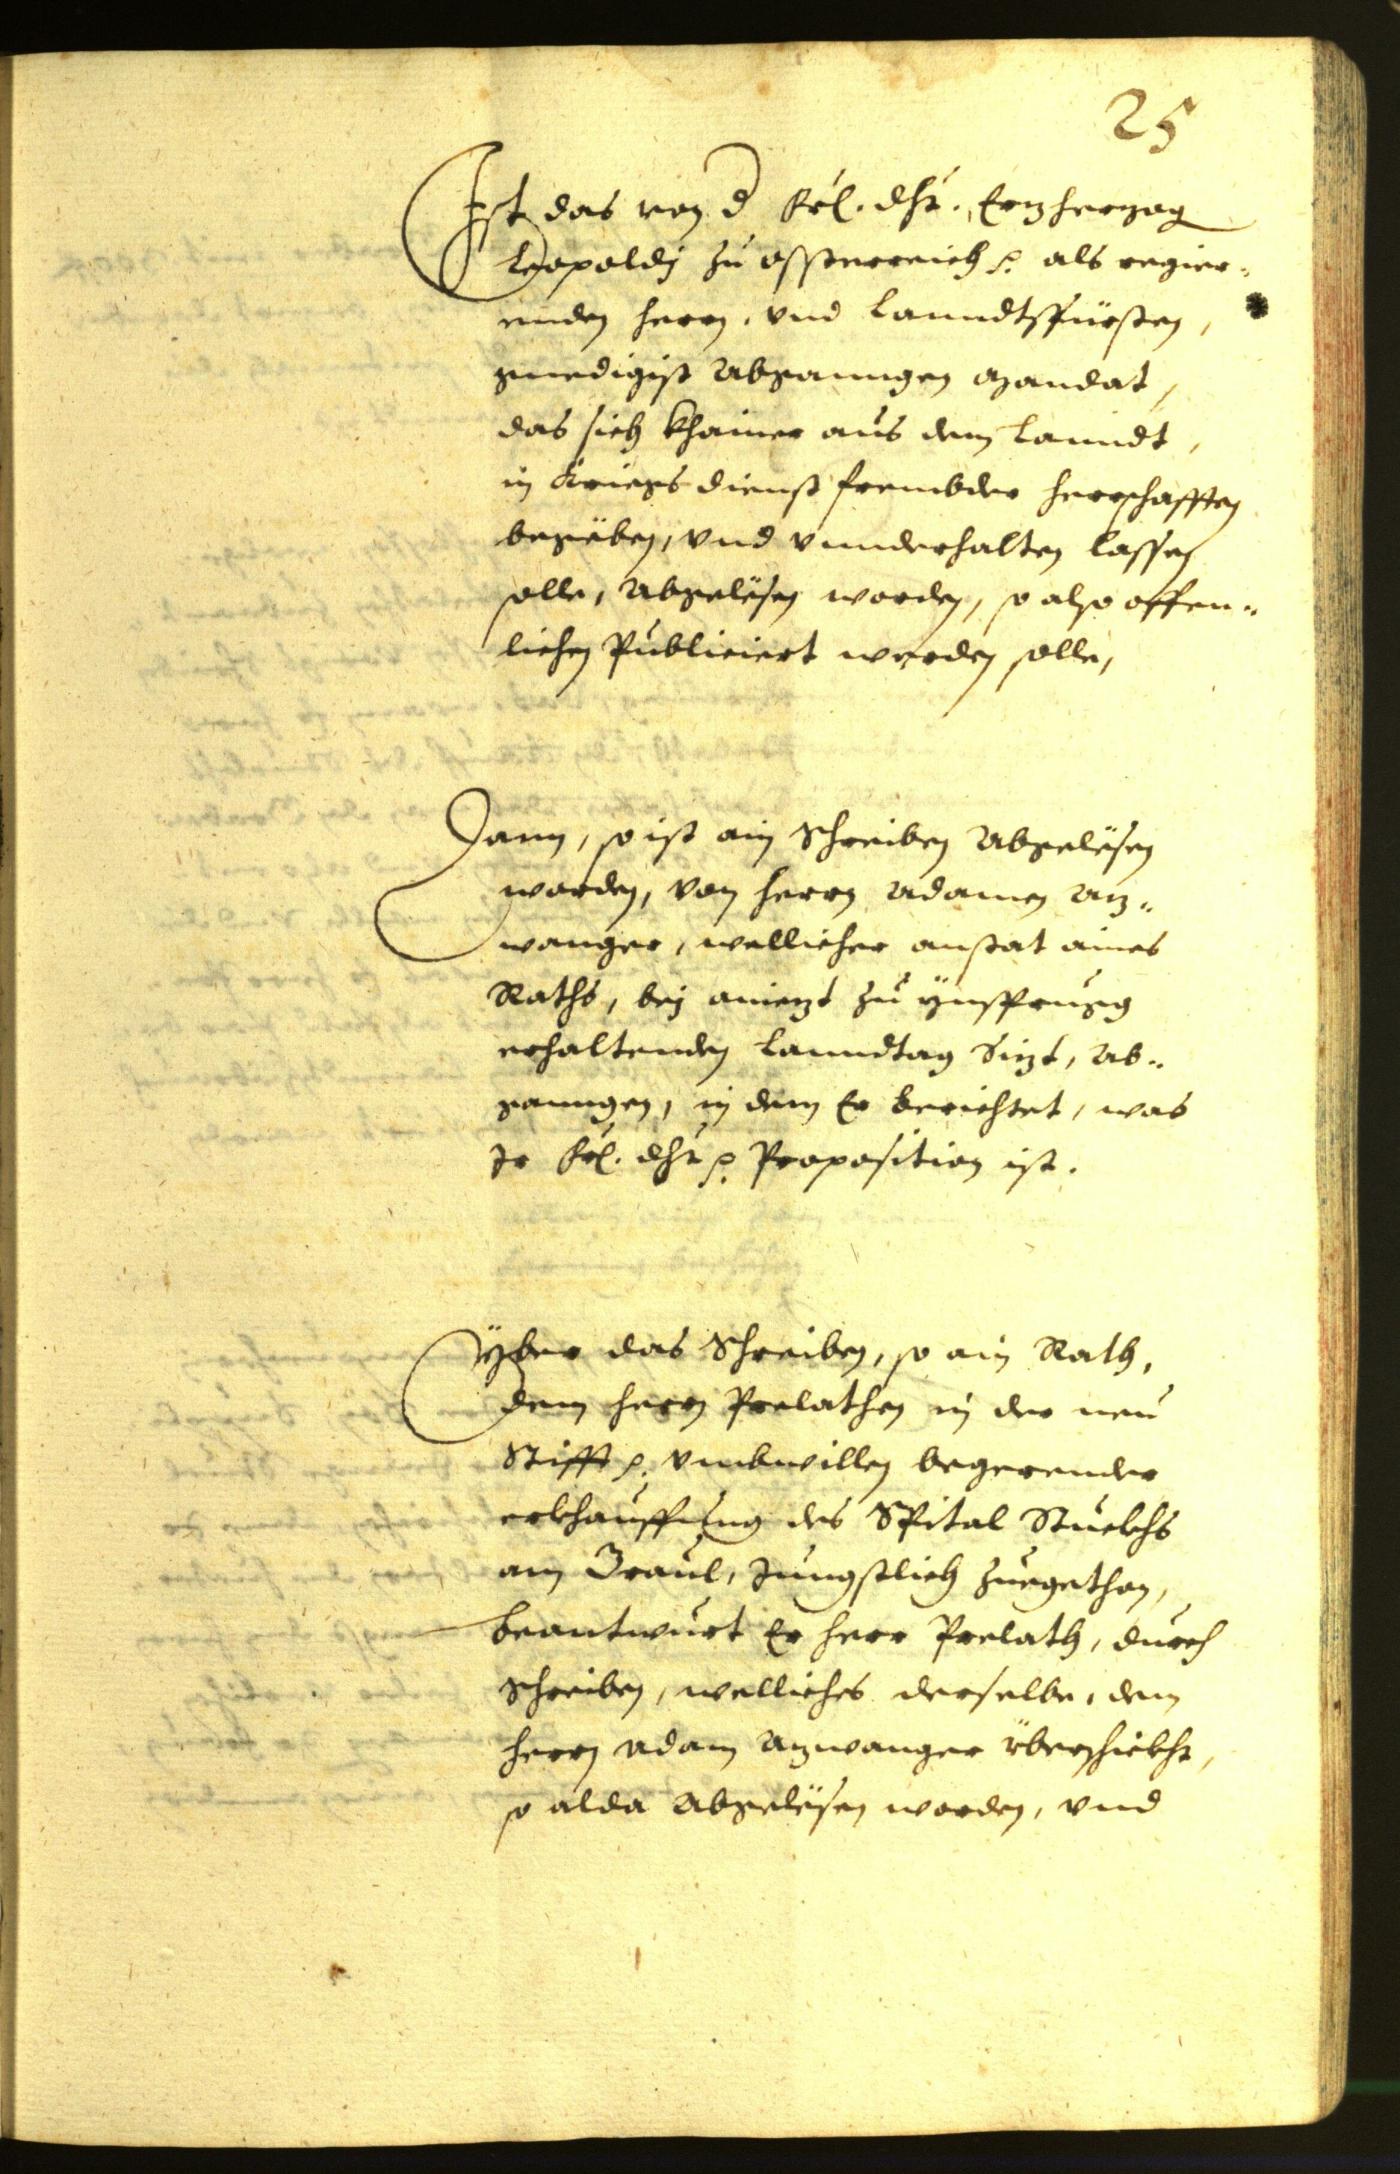 25
Ist das von d Frl. dht. Ertzherzog
Leopoldj zu Össterreich p. als regier-
unden herrn, vnd Lanndtsfürsten,
gnedigist Abganngen Mandat,
das sich khainer aus dem Lanndt,
in Kriegs dienst frembder herrschafften
begeben, vnd vnnderhalten lassen
solle, Abgelesen worden, so also offen-
lichen Publiciert werden solle,
Dann, so ist ain Schreiben Abgelesen
worden, von herrn Adamen An-
wanger, wellicher anstat aines
Raths, bej anietzt zu Ynsprugg
erhaltenden Lanndtag Sitzt, Ab-
ganngen, in dem Er berichtet, was
Ir Frl. dht p. Proposition ist.
Yber das Schreiben, so ain Rath,
dem herrn Prelathen in der neu
Stifft p. vmbwillen begerender
erkhauffung des Spital Stuckhs
am Graul, Jungstlich zuegethan,
beantwurt Er herr Prelath, durch
Schreiben, welliches derselbe, dem
herrn Adam Anwanger überschickht,
so alda Abgelesen worden, vnd